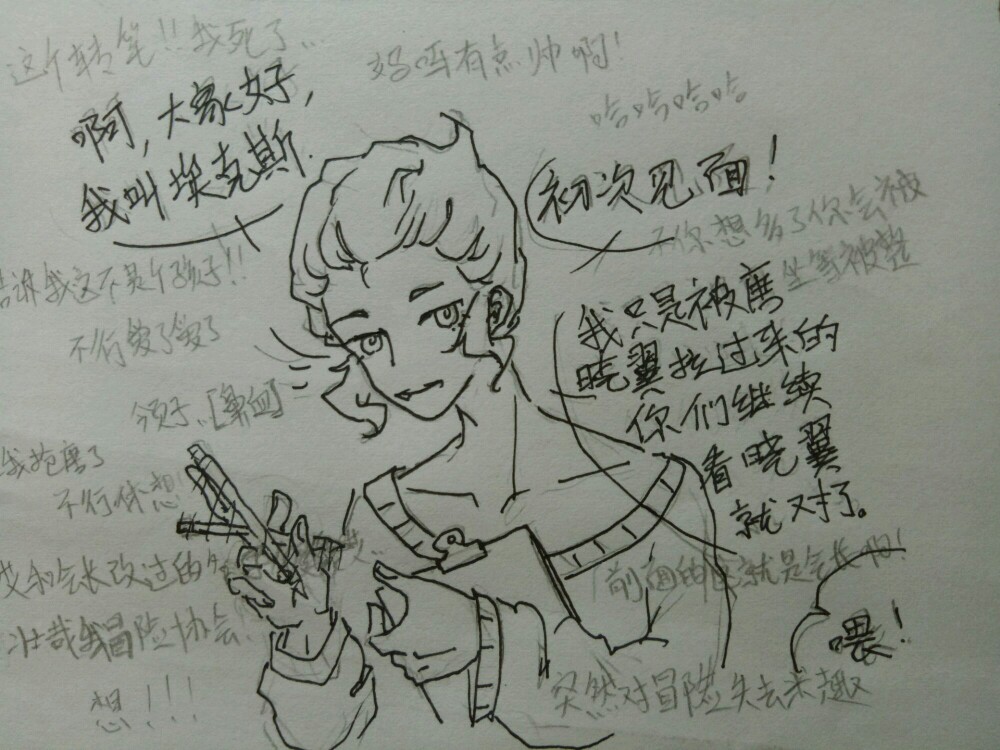 这个转笔!!我死了...
妈呀有点帅啊!
哈哈哈哈
啊,大家好,
我叫埃克斯.
初次见面!
不你想多了你会被
坐等被整
我这不是个孩子!!
不行
我只是被鹰
晓翼拉过来的
你们继续
看晓翼
就对了。
[鼻血]
不行休想!
我和会长改过的
壮哉我冒险协会!
前面的 就是会长啊!
喂!
想!!!
突然对冒险失去兴趣